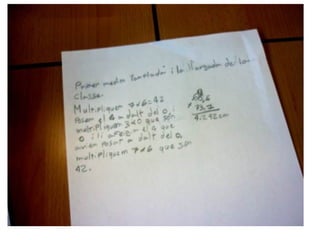 Primer medim l'amplada i la llargada de la
classe.
Multipliquem 7x6=42
Posem el 4 a dalt del 0, i
multipliquem 7x0 que són
0 i li afegim el 4 que
haviem posat a dalt del 0,
multipliquem 7x6 que són
42.
4.242cm